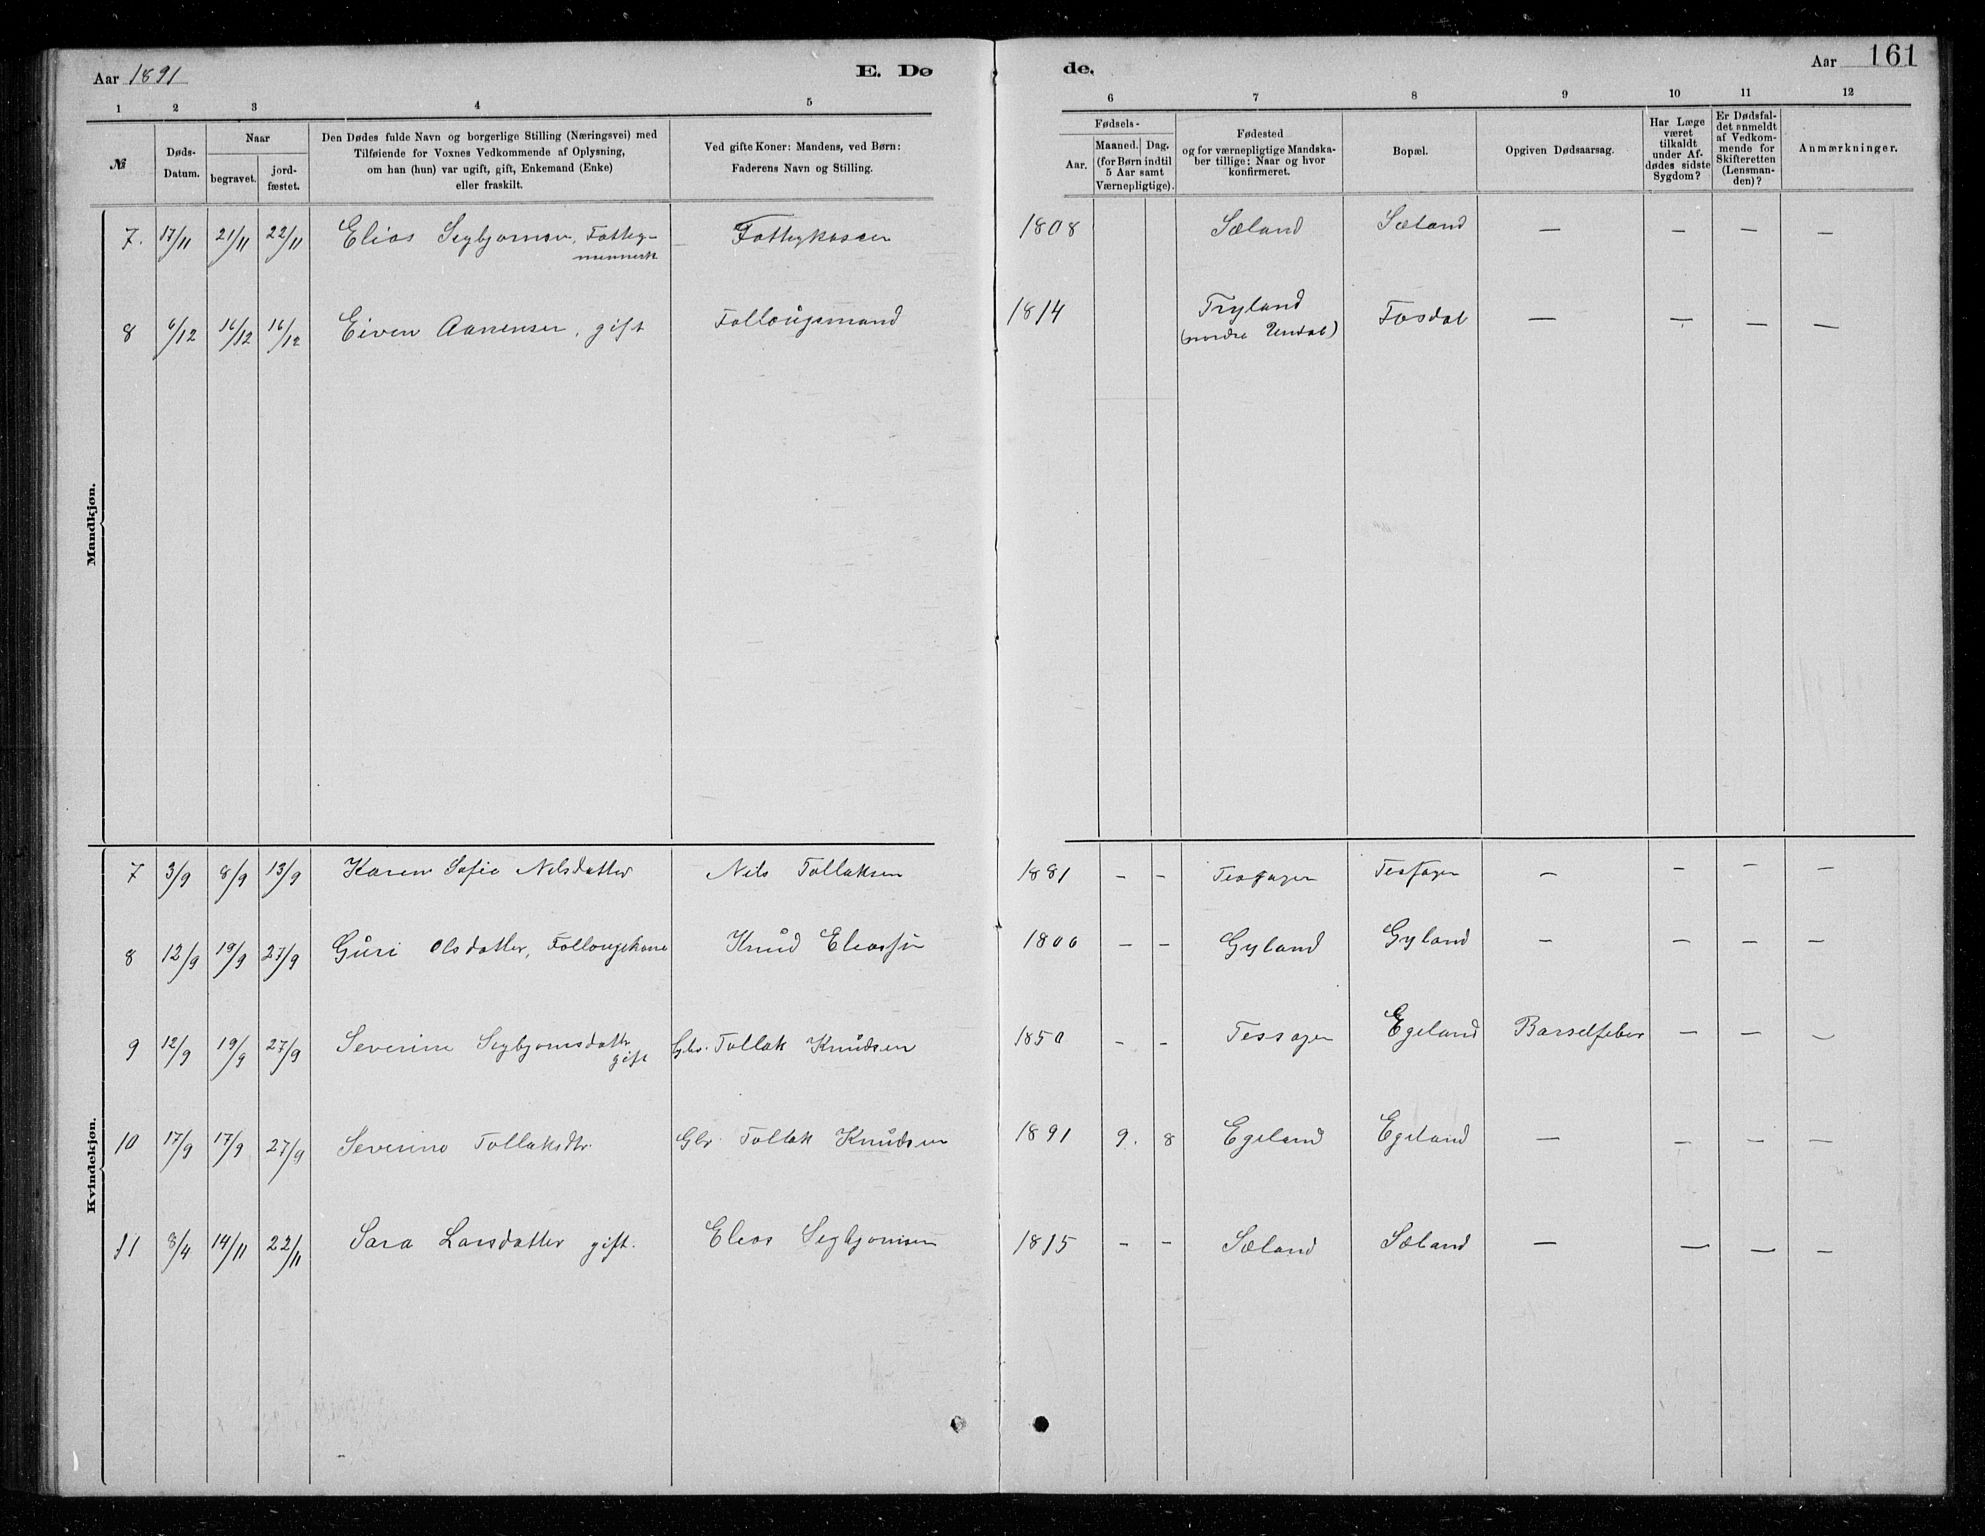 Aar 1891 E. Dø de. Aar 161
1 2 3 4 5 6 7 8 9 10 11 12
№
Døds-
Datum.
Naar
begravet.
jord-
fæstet.
Den Dødes fulde Navn og borgerlige Stilling (Næringsvei) med
Tilføiende for Voxnes Vedkommende af Oplysning,
om han (hun) var ugift, gift, Enkemand (Enke)
eller fraskilt.
Ved gifte Koner: Mandens, ved Børn:
Faderens Navn og Stilling.
Fødsels-
Aar.
Maaned. Dag.
(for Børn indtil
5 Aar samt
Værnepligtige).
Fødested
og for værnepligtige Mandska-
ber tillige: Naar og hvor
konfirmeret.
Bopæl.
Opgiven Dødsaarsag.
Har Læge
været
tilkaldt
under Af-
dødes sidste
Sygdom?
Er Dødsfal-
det anmeldt
af Vedkom-
mende for
Skifteretten
(Lensman-
den)?
Anmærkninger.
Mandkjøn.
7. 17/11 21/11 22/11 Elias Segbjornsen, Fattig- Fattigkassen 1808 Sæland Sæland — — — —
mennesk
8 6/12 16/12 16/12 Eiven Aanensen, gift Follougsmand 1814 Tryland Fosdal — — — —
(nordre Undal)
Kvindekjøn.
7 3/9 8/9 13/9 Karen Sofie Nilsdatter Nils Tollaksen 1881 — — — — — —
8 12/9 19/9 27/9 Guri Olsdatter, Follougskone Knud Eliassøn 1806 — — Gyland Gyland — — — —
9 12/9 19/9 27/9 Severine Segbjornsdatter Gbr. Tollak Knudsen 1850 — — Egeland Barselfeber — — —
gift
10 17/9 17/9 27/9 Severine Tollaksdtr. Gbr. Tollak Knudsen 1891 9. 8 Egeland Egeland — — — —
11 8/4 14/11 22/11 Sara Larsdatter gift. Elias Segbjornsen 1815 — — Sæland Sæland — — — —